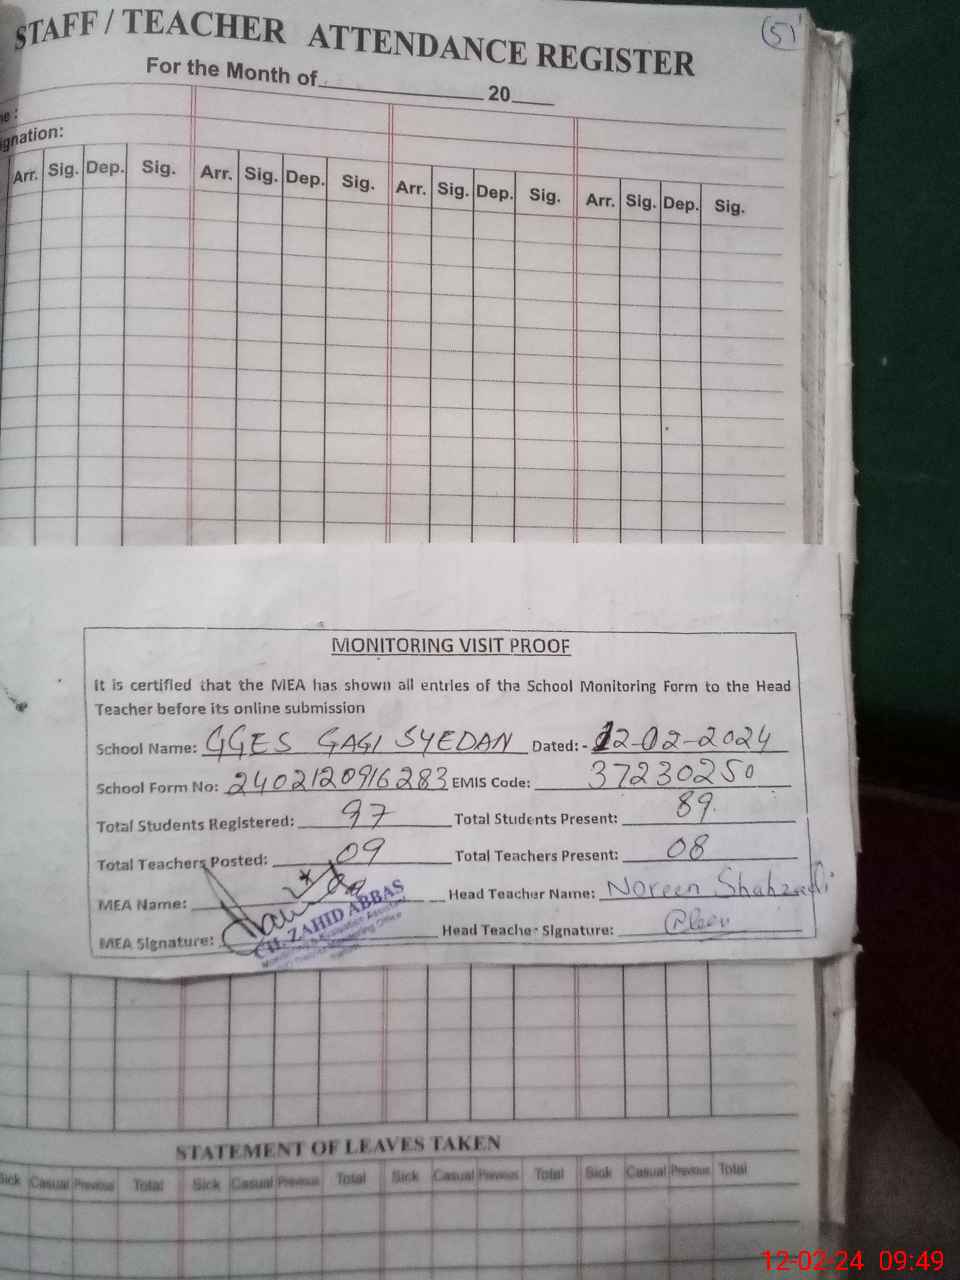 (5)
STAFF / TEACHER ATTENDANCE REGISTER
For the Month of 20
ne :
ignation:
Arr. Sig. Dep. Sig. Arr. Sig. Dep. Sig. Arr. Sig. Dep. Sig. Arr. Sig. Dep. Sig.
MONITORING VISIT PROOF
It is certified that the MEA has shown all entries of the School Monitoring Form to the Head
Teacher before its online submission
School Name: GGES GAGI SYEDAN Dated: - 12-02-2024
School Form No: 2402120916283 EMIS Code: 37230250
Total Students Registered: 97 Total Students Present: 89
Total Teachers Posted: 09 Total Teachers Present: 08
MEA Name: Head Teacher Name: Noreen Shahzadi
MEA Signature: Head Teacher Signature:
CH. ZAHID ABBAS
Monitoring & Evaluation Assistant
STATEMENT OF LEAVES TAKEN
Sick Casual Previous Total Sick Casual Previous Total Sick Casual Previous Total Sick Casual Previous Total
12-02-24 09:49